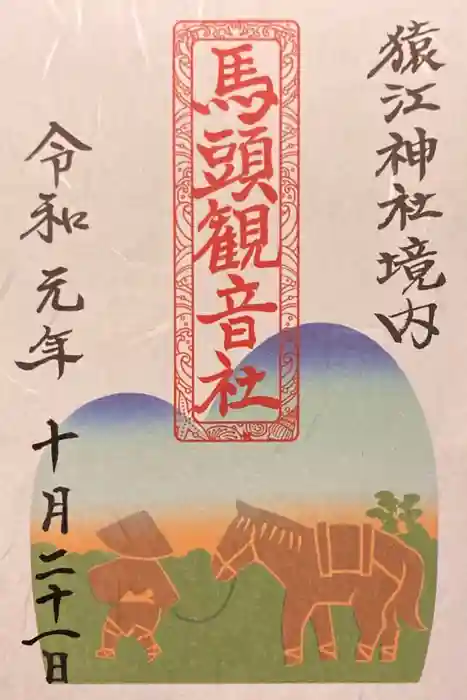 猿江神社境内
馬頭観音社
令和元年十月二十一日